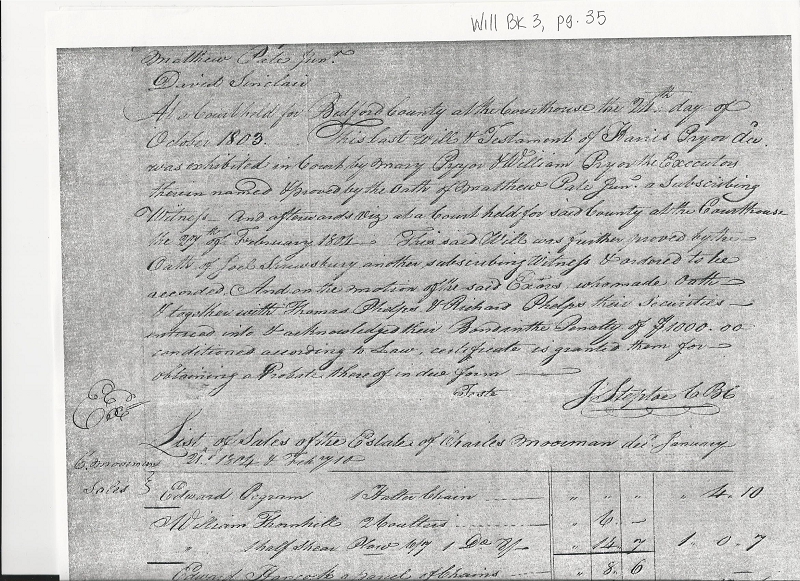 Will Bk 3, pg. 35
Matthew Pate Junr.
David Sinclair
At a Court held for Bedford County at the Courthouse the 24th day of
October 1803. This last Will & Testament of Harris Pryor decd.
was exhibited in Court by Mary Pryor & William Pryor the Executors
therein named & proved by the Oath of Matthew Pate Junr. a Subscribing
Witness And afterwards viz at a Court held for said County at the Courthouse
the 27th of February 1804 This said Will was further proved by the
Oath of Joel Shrewsbury another subscribing Witness & ordered to be
recorded. And on the motion of the said Exors. who made Oath
& together with Thomas Phelps & Richard Phelps their Securities
entered into & acknowledged their Bond in the Penalty of $1000.00
conditioned according to Law, certificate is granted them for
obtaining a Probat thereof in due form
Teste J. Steptoe CBC
Exd
List of Sales of the Estate of Charles Moorman decd. January
21st 1804 & Feby 10
C. Moormans
Sales
Edward Pegram 1 Halter Chain " " " " 4. 10
William Thornhill 2 Coulters " 6. —
" 1 half shear Plow 6/7 1 Do 8/ " 14. 7 1. 0. 7
Edward Hancock a parcel of Chains " 8. 6 —